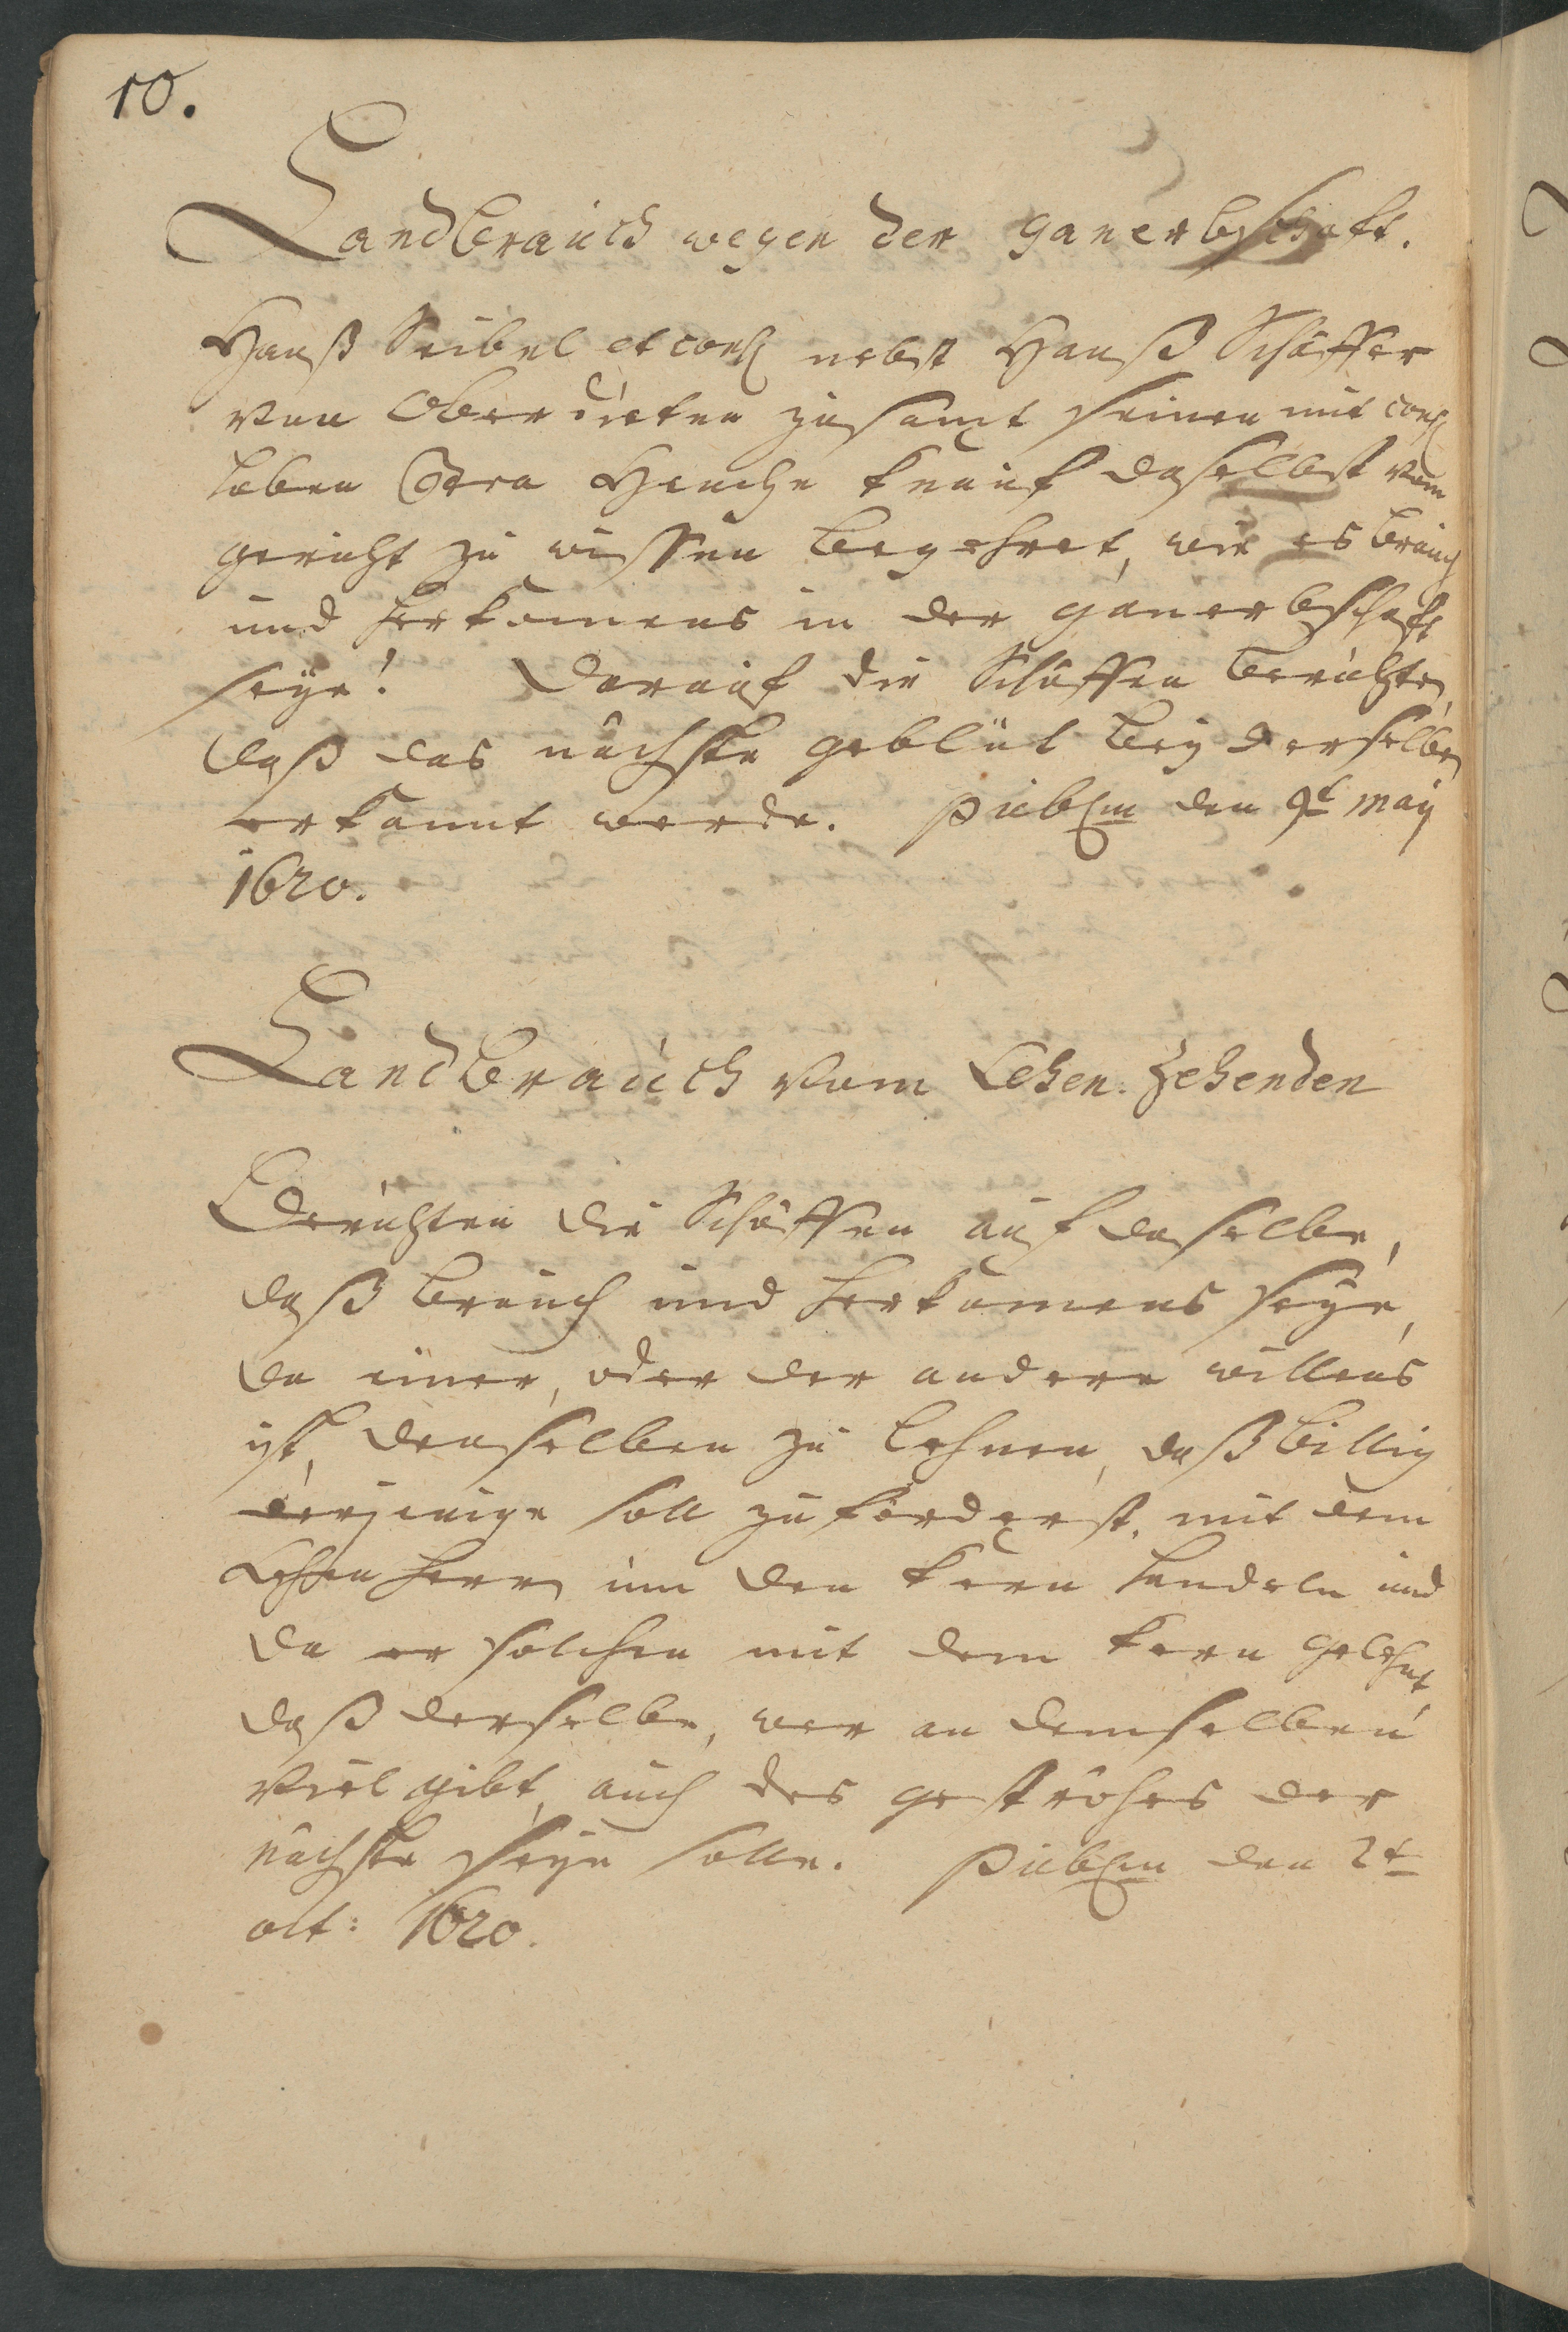 10.
Landbrauch wegen der ganerbschaft.
Hanß Seibel et cons nebst Hanß Schäffer
von Oberdieten zusamt seinen mit cons
haben Contra Henche Knauf daselbst vom
gericht zu wissen begehret, wie es brauch
und herkomens in der ganerbschaft
seÿe! Darauf die Schöffen berichten,
daß das nächste geblüt beÿ derselben
erkannt werde. publm den 9t maÿ
1620.
Landbrauch vom Lehen: Zehenden
Berichten die Schöffen auf daselbe,
daß brauch und herkomens seÿe,
da einer, oder der andere willens
ist, denselben zu lehnen, daß billig
derjenige soll zuforderst, mit dem
Lehen herrn um den kern handeln und
da er solchen mit dem kern gelehnt,
daß derselbe, wer an demselben
viel gibt, auch des geströhes der
nächste seÿn solle. publm den 2t
oct: 1620.